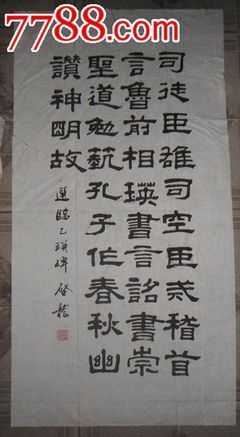 7788.com
司徒臣雄司空臣戒稽首
言魯前相瑛書言詔書崇
聖道勉藝孔子作春秋幽
讚神明故
選臨乙瑛碑 啟龍